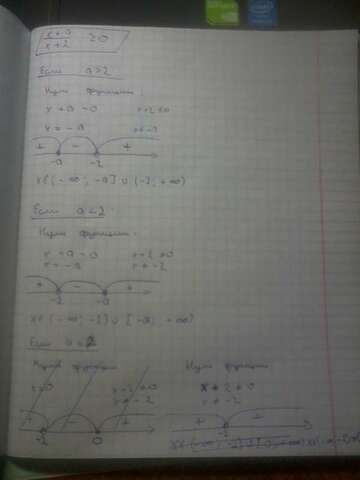 x+a
x+2 ≥0
Если a>2:
Нули функции:
x+a=0 x+2≠0
x=-a x≠-2
+ - +
-a -2
x∈(-∞; -a] ∪ (-2; +∞)
Если a<2:
Нули функции:
x+a=0 x+2≠0
x=-a x≠-2
+ - +
-2 -a
x∈(-∞; -2) ∪ [-a; +∞)
Если a=2
Нули функции Нули функции:
x=0 x+2≠0 x+2≠0
x≠-2 x≠-2
+ - + + +
-2 0 -2